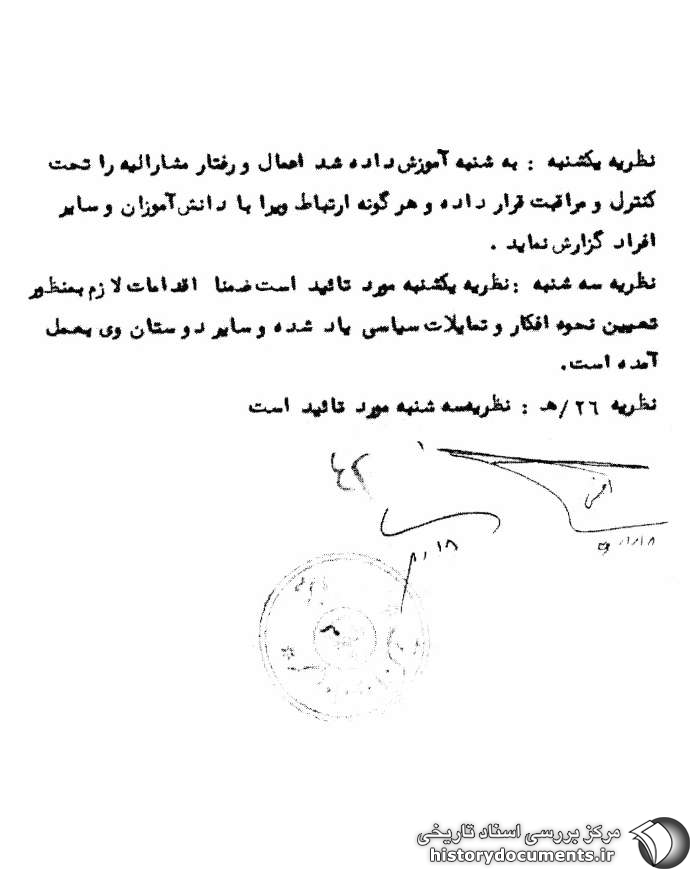 نظریه یکشنبه : به شنبه آموزش داده شد اعمال و رفتار مشارالیه را تحت
کنترل و مراقبت قرار داده و هر گونه ارتباط ویرا با دانش آموزان و سایر
افراد گزارش نماید .
نظریه سه شنبه : نظریه یکشنبه مورد تائید است ضمنا اقدامات لازم بمنظور
تعیین نحوه افکار و تمایلات سیاسی یاد شده و سایر دوستان وی بعمل
آمده است.
نظریه ۲۶/هـ : نظریه سه شنبه مورد تائید است
مرکز بررسی اسناد تاریخی
historydocuments.ir